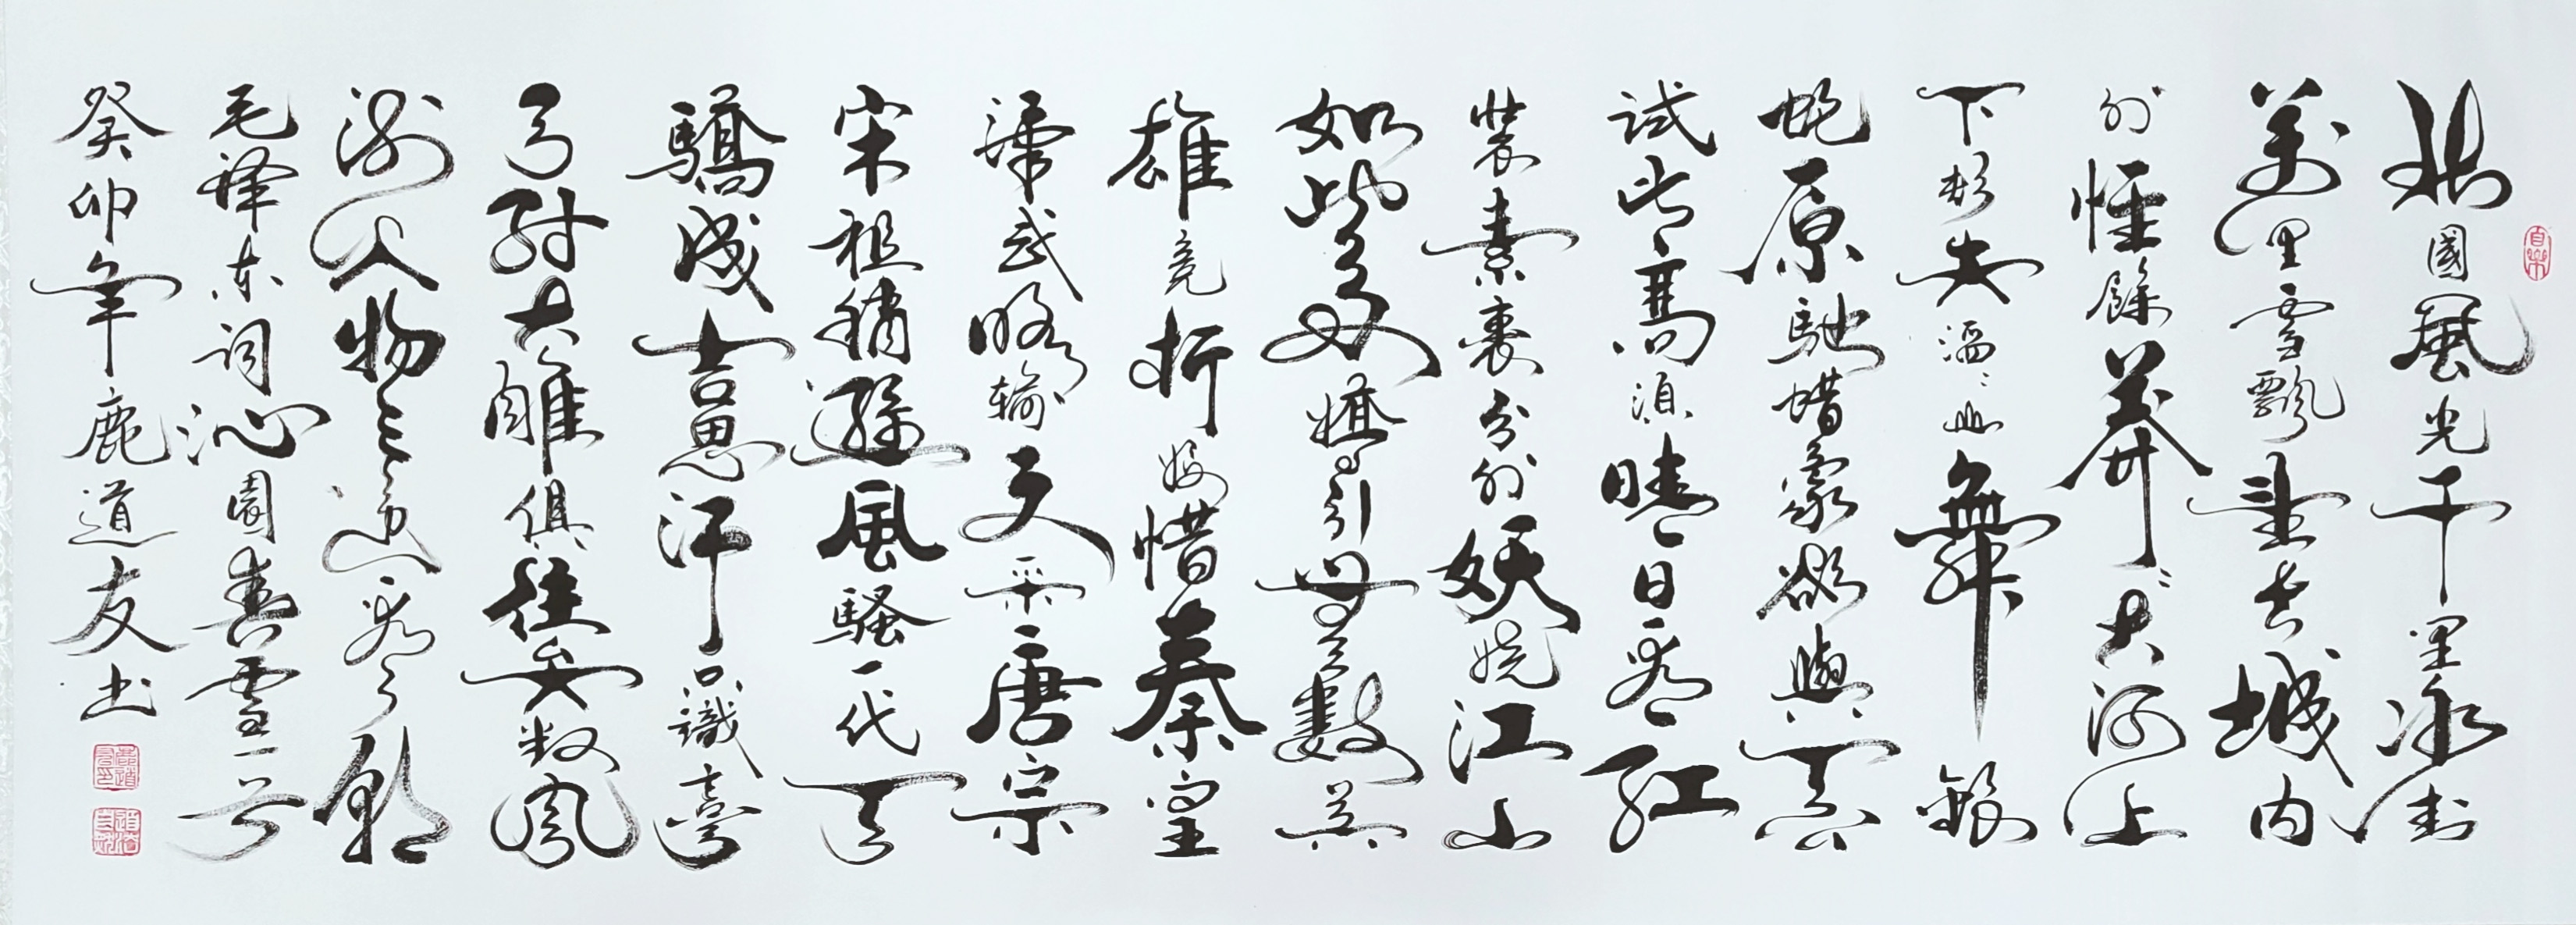 北國風光千里冰封
萬里雪飄望長城內
外惟餘莽〻大河上
下頓失滔〻山舞銀
蛇原馳蠟象欲與天
試比高須晴日看紅
裝素裹分外妖嬈江山
如此多嬌引無數英
雄競折腰惜秦皇
漢武略輸文采唐宗
宋祖稍遜風騷一代天
驕成吉思汗只識彎
弓射大雕俱往矣數風
流人物還看今朝
毛澤东詞沁園春雪一首
癸卯年鹿道友书